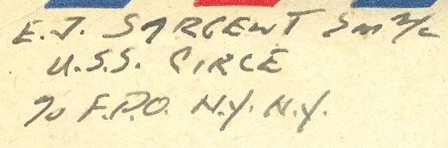 E.J. SARGENT Sm 2/c
U.S.S. CIRCE
℅ F.P.O. N.Y. N.Y.